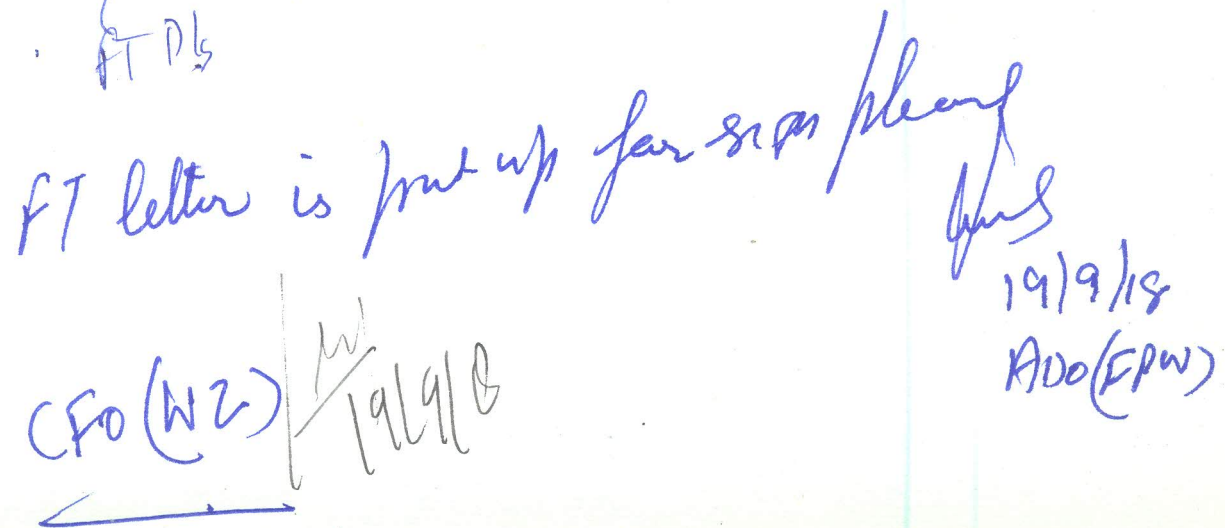 FT Pls
FT letter is put up for sign please
19/9/18
ADO(FPW)
CFO(WZ) 19/9/18